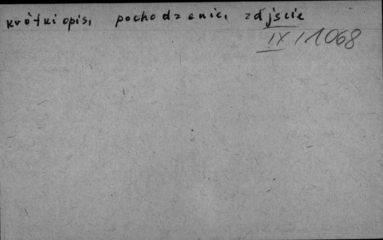 krótki opis, pochodzenie, zdjście
IX/1068